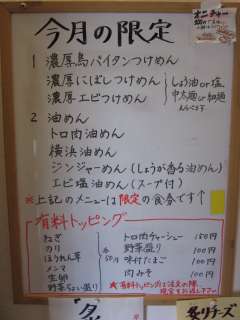 今月の限定
1 濃厚鳥パイタンつけめん
濃厚にぼしつけめん
濃厚エビつけめん
しょう油or塩
中太麺or細麺
えらべます
2 油めん
トロ肉油めん
横浜油めん
ジンジャーめん(しょうが香る油めん)
エビ塩油めん(スープ付)
※上記のメニューは限定の食券です↑
有料トッピング
ねぎ
のり
ほうれん草
メンマ
生卵
野菜ちょい盛り
各50円
トロ肉チャーシュー 150円
野菜盛り 100円
味付たまご 100円
肉みそ 100円
★有料トッピングはご注文の際、
現金でお渡し下さい
オニチャー
炙りチーズ